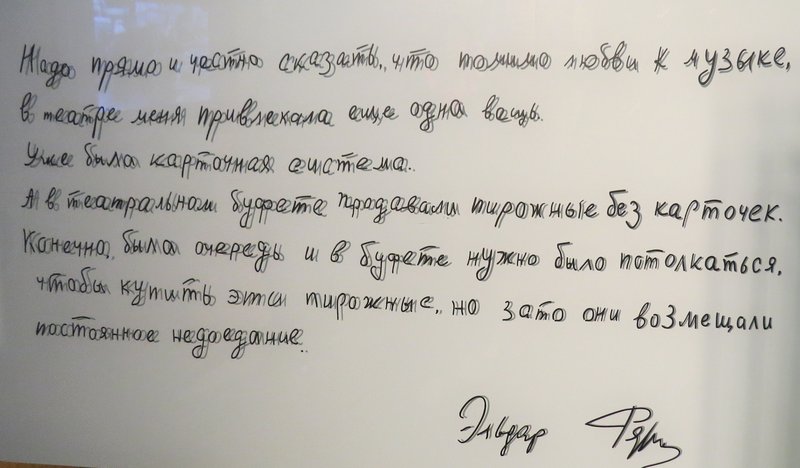 Надо прямо и честно сказать, что помимо любви к музыке,
в театре меня привлекала еще одна вещь.
Уже была карточная система.
А в театральном буфете продавали пирожные без карточек.
Конечно, была очередь и в буфете нужно было потолкаться,
чтобы купить эти пирожные, но зато они возмещали
постоянное недоедание.
Эльдар